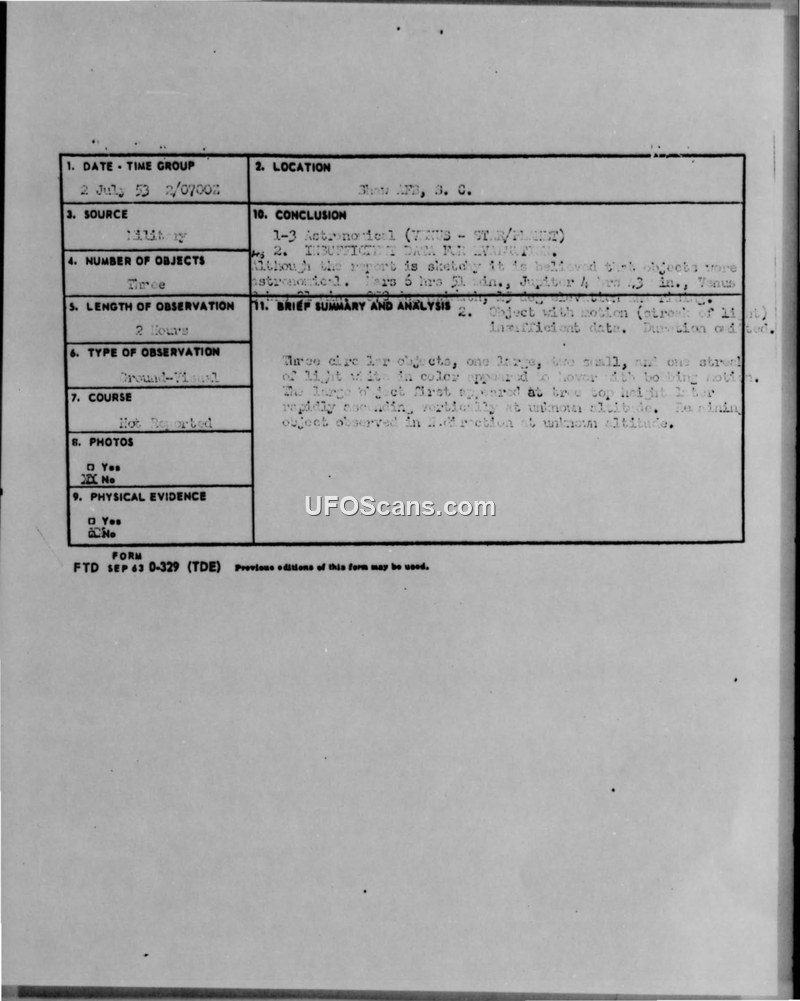 1. DATE - TIME GROUP
2 July 53 2/0700Z
2. LOCATION
Shaw AFB, S. C.
3. SOURCE
Military
4. NUMBER OF OBJECTS
Three
5. LENGTH OF OBSERVATION
2 Hours
6. TYPE OF OBSERVATION
Ground-Visual
7. COURSE
Not Reported
8. PHOTOS
□ Yes
XX No
9. PHYSICAL EVIDENCE
□ Yes
No
10. CONCLUSION
1-3 Astronomical (VENUS - STAR/PLANET)
2. INSUFFICIENT DATA FOR EVALUATION.
Although the report is sketchy it is believed that objects were
astronomical. Mars 5 hrs 51 min., Jupiter 4 hrs 43 min., Venus
11. BRIEF SUMMARY AND ANALYSIS
2. Object with motion (streak of light)
insufficient data. Duration omitted.
Three circular objects, one large, two small, and one streak
of light white in color appeared to hover with bobbing motion.
The large object first appeared at tree top height later
rapidly ascending vertically at unknown altitude. Remaining
object observed in direction at unknown altitude.
UFOScans.com
FORM
FTD SEP 63 0-329 (TDE) Previous editions of this form may be used.